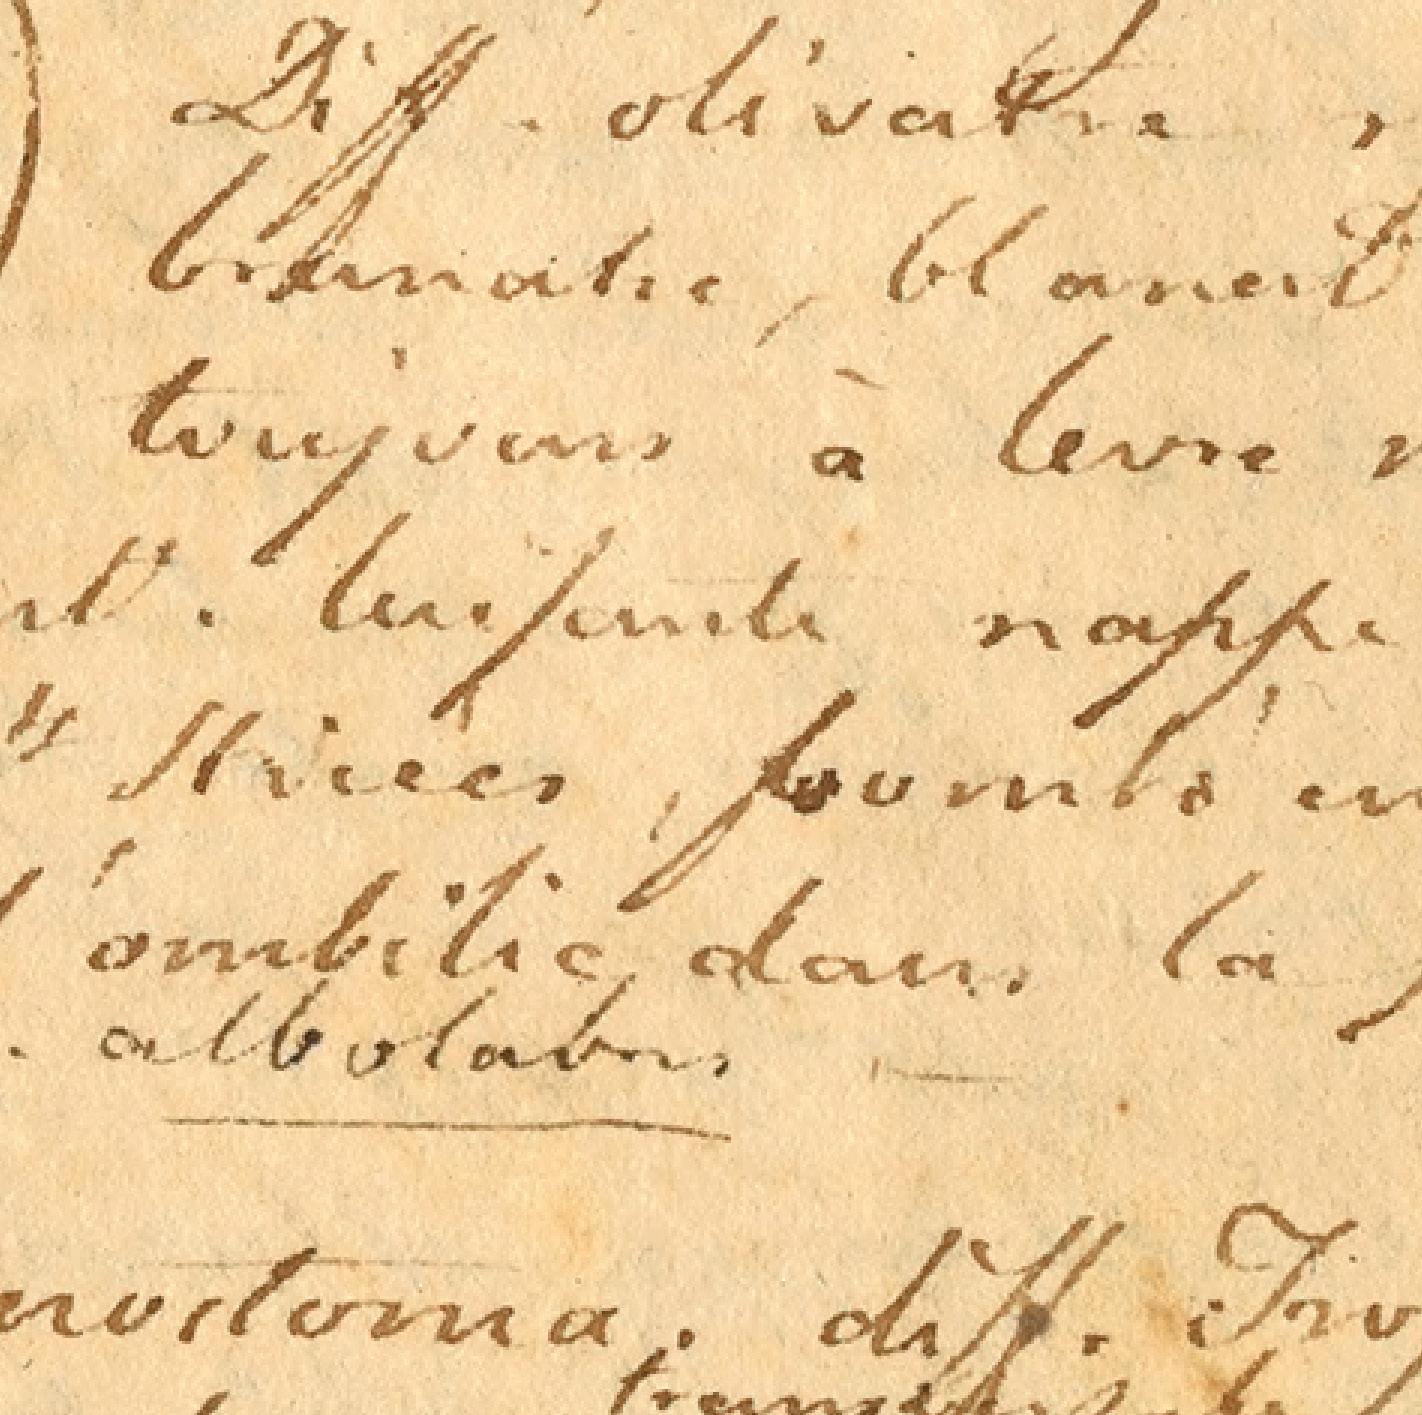 Diff. olivatre
brunatre, blanch
toujours à levre
luisante nappe
4 striées, bombé
l'ombilic dans la
albolabris
ostoma. diff.